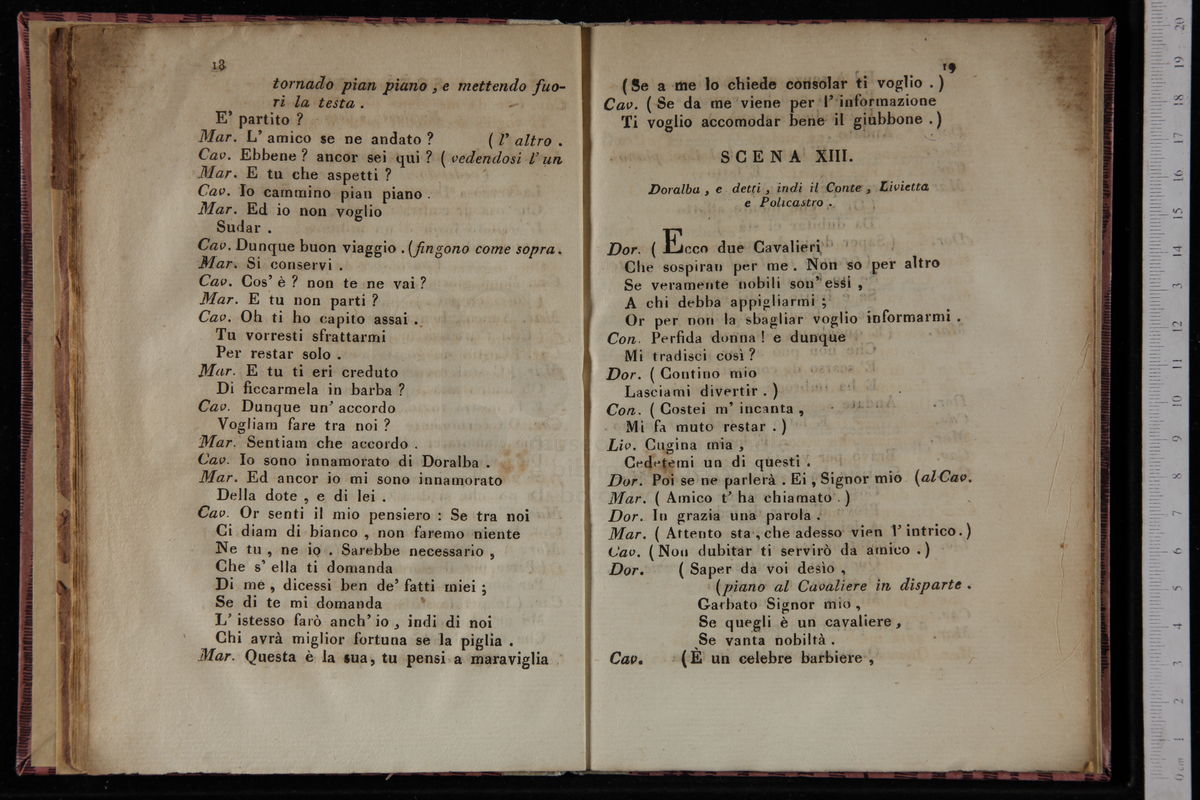 18
tornado pian piano , e mettendo fuo-
ri la testa .
E' partito ?
Mar. L' amico se ne andato ? ( l' altro .
Cav. Ebbene ? ancor sei qui ? ( vedendosi l' un
Mar. E tu che aspetti ?
Cav. Io cammino pian piano .
Mar. Ed io non voglio
Sudar .
Cav. Dunque buon viaggio . (fingono come sopra.
Mar. Si conservi .
Cav. Cos' è ? non te ne vai ?
Mar. E tu non parti ?
Cav. Oh ti ho capito assai .
Tu vorresti sfrattarmi
Per restar solo .
Mar. E tu ti eri creduto
Di ficcarmela in barba ?
Cav. Dunque un' accordo
Vogliam fare tra noi ?
Mar. Sentiam che accordo .
Cav. Io sono innamorato di Doralba .
Mar. Ed ancor io mi sono innamorato
Della dote , e di lei .
Cav. Or senti il mio pensiero : Se tra noi
Ci diam di bianco , non faremo niente
Ne tu , ne io . Sarebbe necessario ,
Che s' ella ti domanda
Di me , dicessi ben de' fatti miei ;
Se di te mi domanda
L' istesso farò anch' io , indi di noi
Chi avrà miglior fortuna se la piglia .
Mar. Questa è la sua, tu pensi a maraviglia
19
(Se a me lo chiede consolar ti voglio .)
Cav. ( Se da me viene per l' informazione
Ti voglio accomodar bene il giubbone .)
SCENA XIII.
Doralba , e detti , indi il Conte , Livietta
e Policastro .
Dor. ( Ecco due Cavalieri
Che sospiran per me . Non so per altro
Se veramente nobili son' essi ,
A chi debba appigliarmi ;
Or per non la sbagliar voglio informarmi .
Con. Perfida donna ! e dunque
Mi tradisci così ?
Dor. ( Contino mio
Lasciami divertir . )
Con. ( Costei m' incanta ,
Mi fa muto restar . )
Liv. Cugina mia ,
Cedetemi un di questi .
Dor. Poi se ne parlerà . Ei , Signor mio (al Cav.
Mar. ( Amico t' ha chiamato . )
Dor. In grazia una parola .
Mar. ( Attento sta , che adesso vien l' intrico.)
Cav. ( Non dubitar ti servirò da amico .)
Dor. ( Saper da voi desìo ,
(piano al Cavaliere in disparte .
Garbato Signor mio ,
Se quegli è un cavaliere ,
Se vanta nobiltà .
Cav. (È un celebre barbiere ,
0 cm 1 2 3 4 5 6 7 8 9 10 11 12 13 14 15 16 17 18 19 20